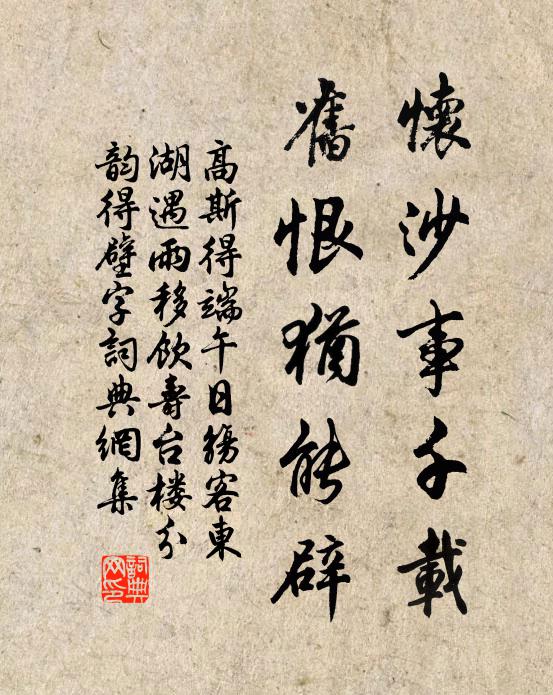 懷沙事千載
舊恨猶能辟
高斯得端午日觴客東
湖遇雨移飲壽台楼分
韵得壁字詞典網集
詞典
网印